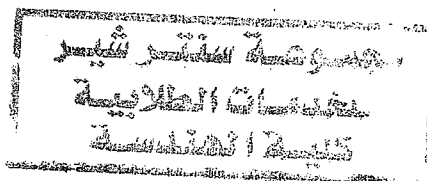 مجموعة سنتر شير
بخدمات الطلابية
كلية الهندسة